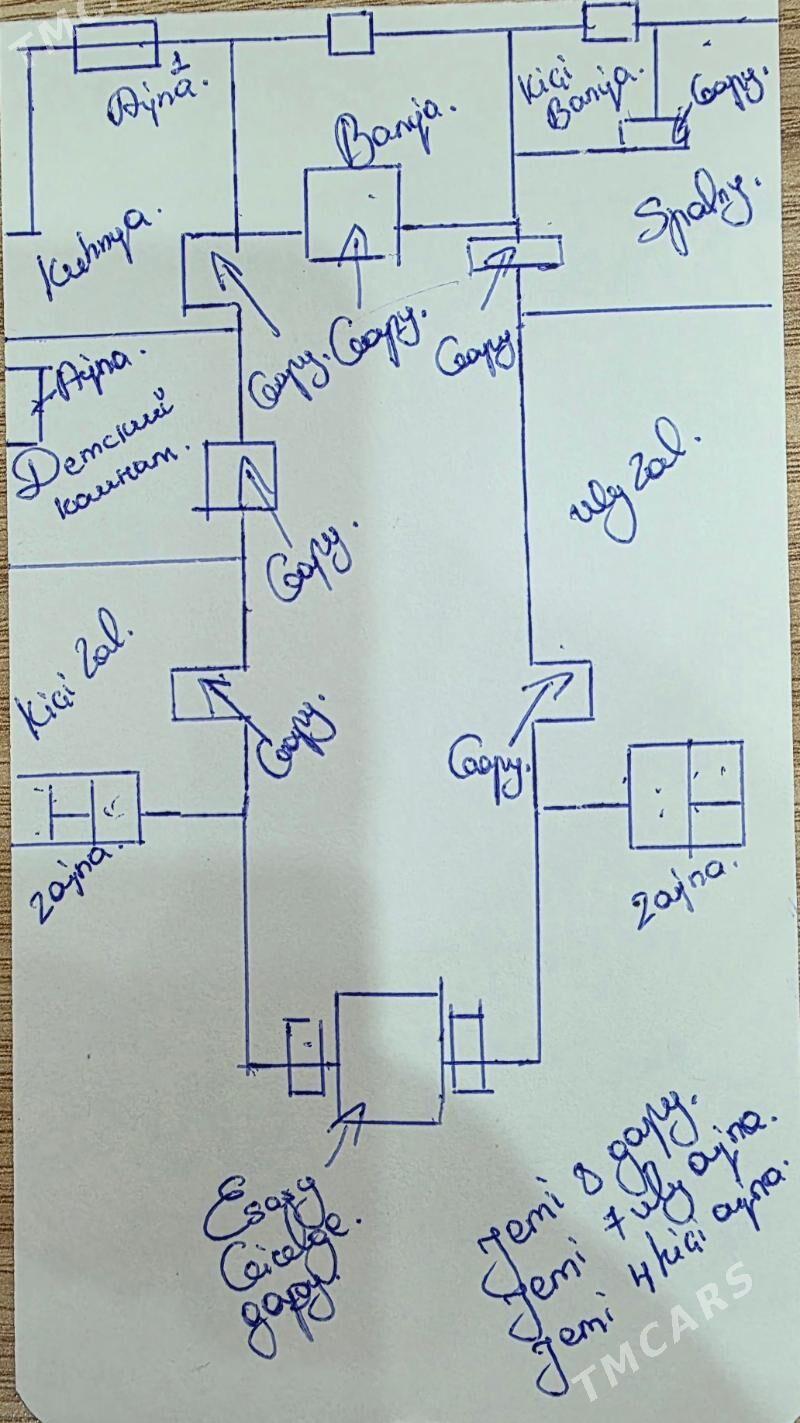 TMCARS
1
Aýna.
Banýa.
Kiçi
Banýa.
Gapy.
Kuhnya.
Spalny.
Gapy.
Gapy.
Gapy
Aýna.
Детский
комнат.
Uly Zal.
Gapy.
Kiçi Zal.
Gapy.
Gapy.
2 aýna.
2 aýna.
Esasy
Girelge
gapy.
Jemi 8 gapy.
Jemi 7 uly aýna.
Jemi 4 kiçi aýna.
TMCARS